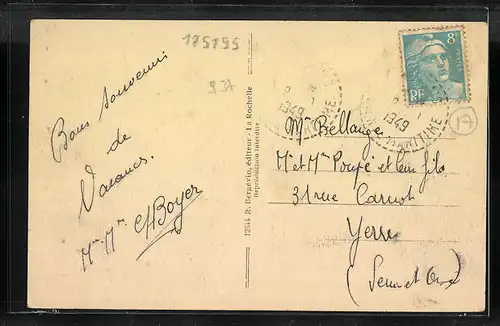 175195
937
Bons souvenirs
de
Vacances.
Mr Mme Boyer
12344 R. Bergevin, éditeur - La Rochelle
Reproduction interdite
8F
RF
1949
1949
MARITIME
17
Mme Bellanger
Mr et Mme Poupé et leur fils
31 rue Carnot
Yerres
(Seine et Oise)